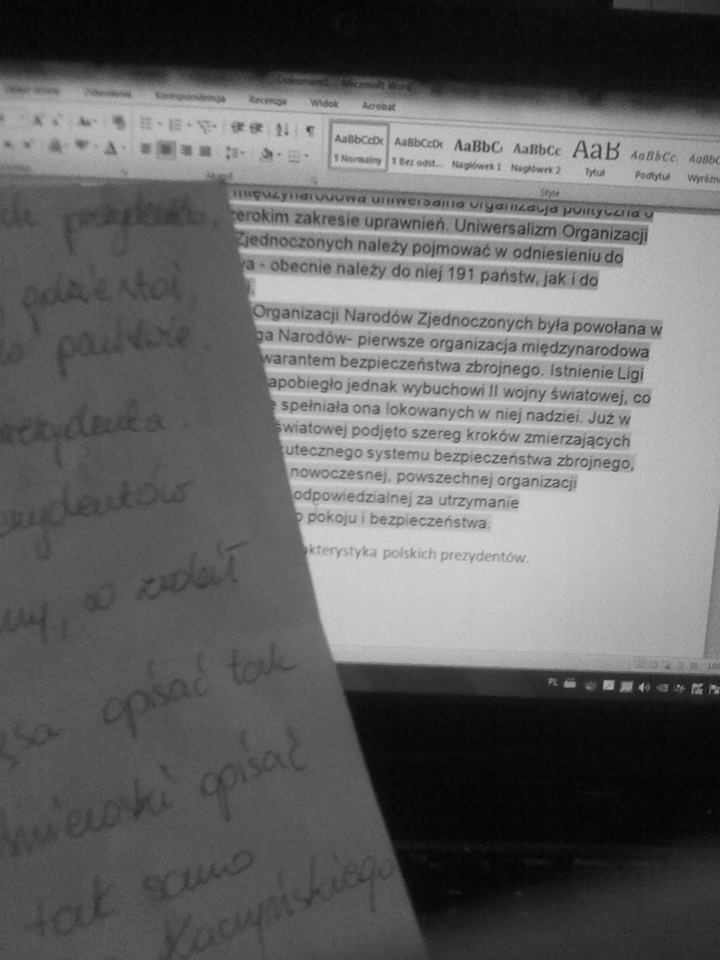 Dokument1 - Microsoft Word
Korespondencja Recenzja Widok Acrobat
AaBbCcDc AaBbCcDc AaBbC AaBbCc AaB AaBbCc. AaBb
¶ Normalny ¶ Bez odst... Nagłówek 1 Nagłówek 2 Tytuł Podtytuł Wyróżn
Akapit Style
międzynarodowa uniwersalna organizacja polityczna o
zerokim zakresie uprawnień. Uniwersalizm Organizacji
Zjednoczonych należy pojmować w odniesieniu do
wa - obecnie należy do niej 191 państw, jak i do
Organizacji Narodów Zjednoczonych była powołana w
ga Narodów- pierwsze organizacja międzynarodowa
warantem bezpieczeństwa zbrojnego. Istnienie Ligi
apobiegło jednak wybuchowi II wojny światowej, co
e spełniała ona lokowanych w niej nadziei. Już w
światowej podjęto szereg kroków zmierzających
kutecznego systemu bezpieczeństwa zbrojnego,
nowoczesnej, powszechnej organizacji
odpowiedzialnej za utrzymanie
o pokoju i bezpieczeństwa.
akterystyka polskich prezydentów.
PL
prezydenta.
gdzie stoi,
państwie.
rezydenta.
ezydentów
ny, co zrobił
ęsa opisać tak
śniewski opisać
tak samo
Kaczyńskiego